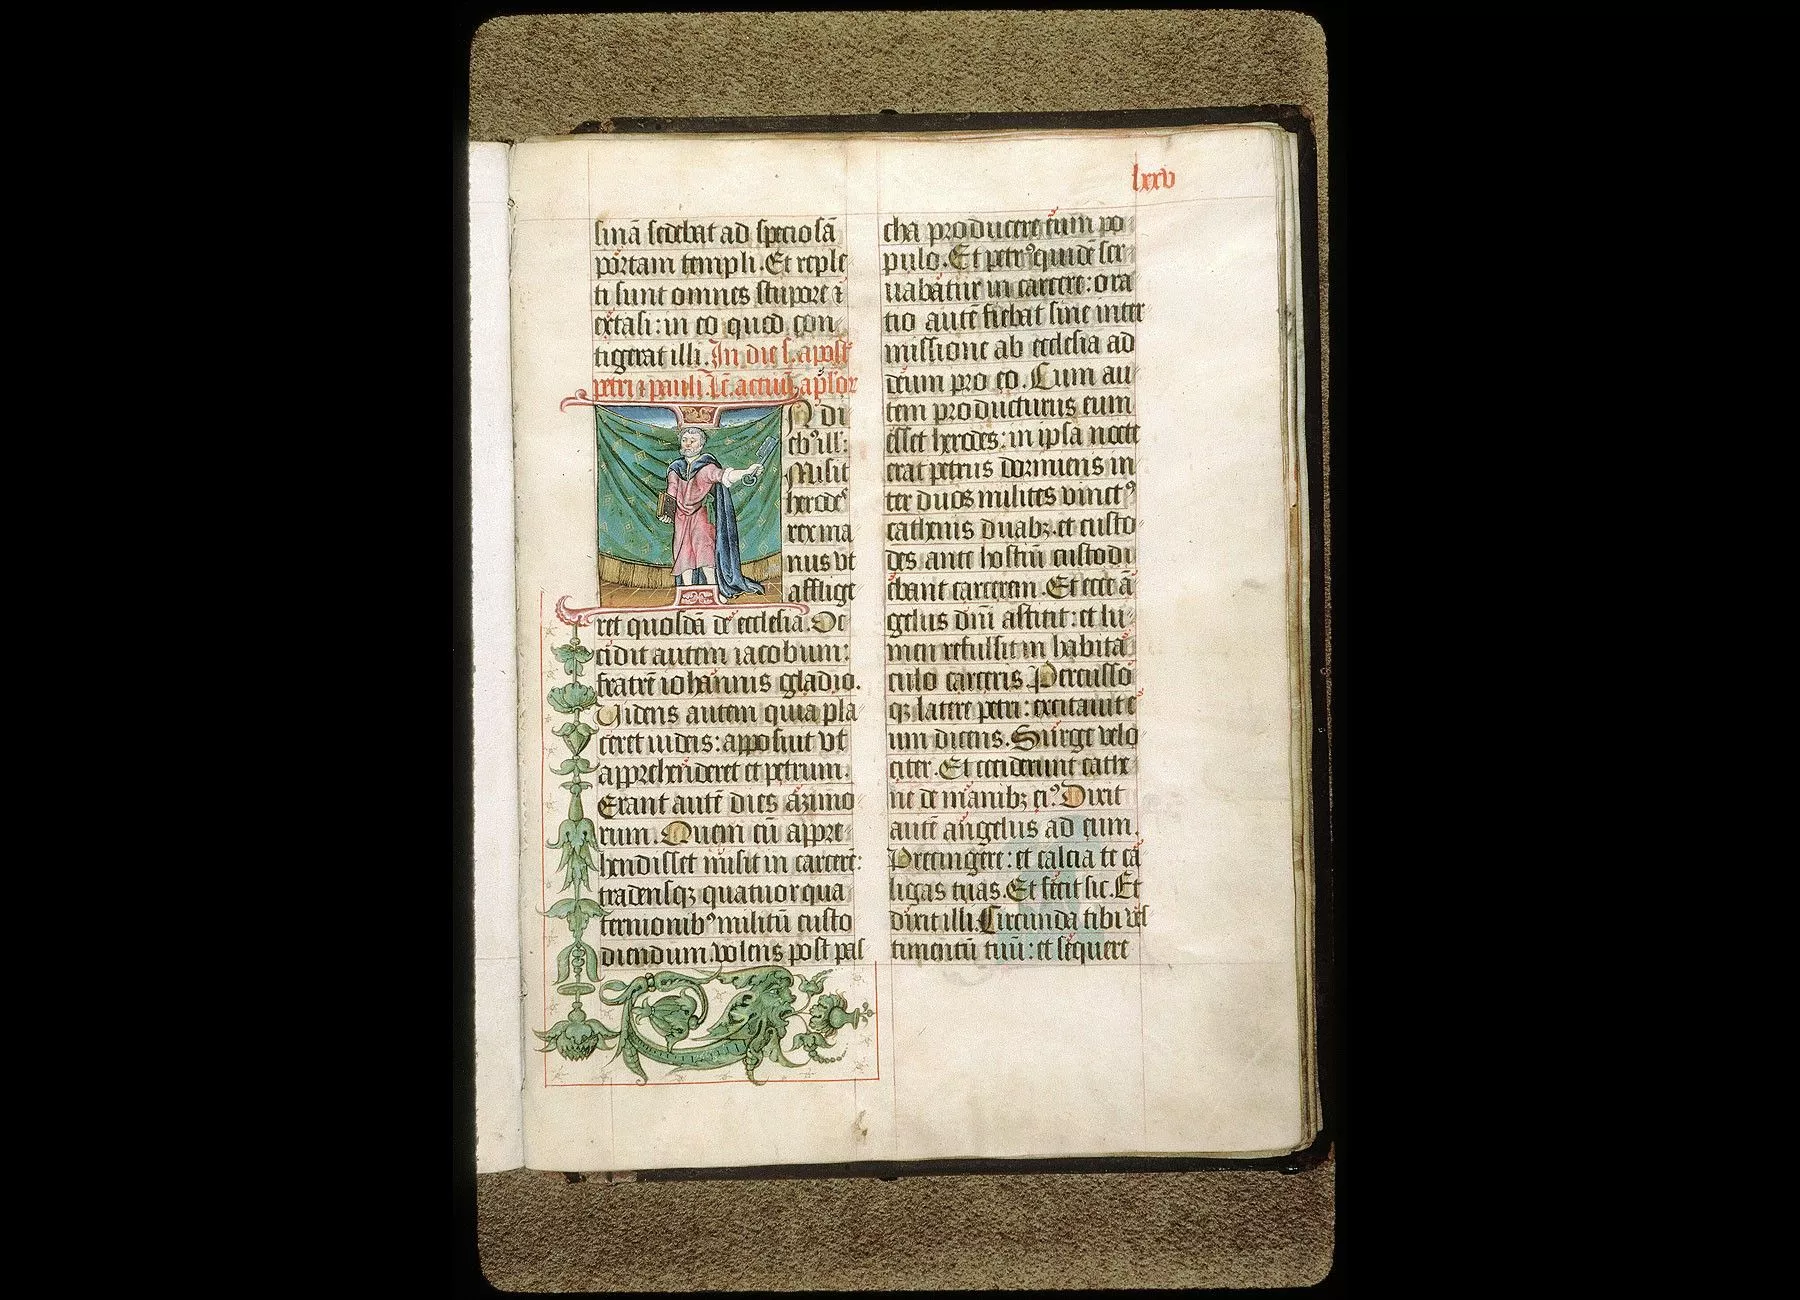 lxxv
sinā sedebat ad speciosā
portam templi. Et reple
ti sunt omnes stupore ⁊
extasi: in eo quod con
tigerat illi. In die s. apost̄
petri ⁊ pauli. Lc̄. actuū apl̄or
IN di
ebꝰ ill̄:
Misit
herodeˢ
rex ma
nus vt
afflige
ret quosdā de ecclesia. Oc
cidit autem iacobum:
fratrē iohannis gladio.
Videns autem quia pla
ceret iudeis: apposuit vt
apprehenderet et petrum.
Erant autē dies azimo
rum. Quem cū appre
hendisset misit in carcerē:
tradensqꝫ quatuor qua
ternionibꝰ militū custo
diendum. volens post pas
cha producere eum po
pulo. Et petrꝰ quidē ser
uabatur in carcere: ora
tio autē fiebat sine inter
missione ab ecclesia ad
deum pro eo. Cum au
tem producturus eum
esset herodes: in ipsa nocte
erat petrus dormiens in
ter duos milites vinctꝰ
cathenis duabꝫ. et custo
des ante hostiū custodi
ebant carcerem. Et ecce ā
gelus dn̄i astitit: et lu
men refulsit in habita
culo carceris. Percusso
qꝫ latere petri: excitauit e
um dicens. Surge velo
citer. Et ceciderunt cathe
ne de manibꝫ eiꝰ. Dixit
autē angelus ad eum.
Precingere: et calcia te ca
ligas tuas. Et fecit sic. Et
dixit illi. Circunda tibi ves
timentū tuū: et sequere